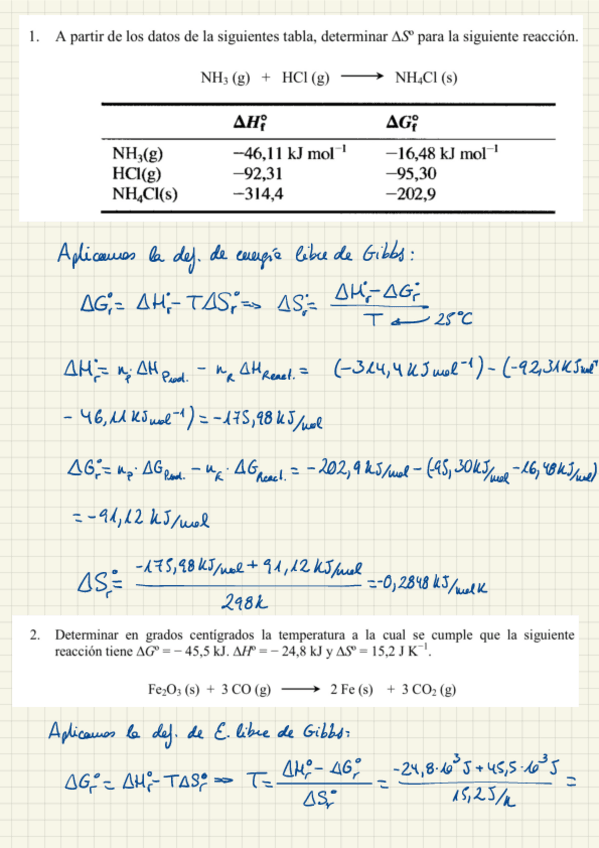 1. A partir de los datos de la siguientes tabla, determinar ΔSº para la siguiente reacción.
NH₃ (g) + HCl (g) ⟶ NH₄Cl (s)
ΔH°f ΔG°f
NH₃(g) −46,11 kJ mol⁻¹ −16,48 kJ mol⁻¹
HCl(g) −92,31 −95,30
NH₄Cl(s) −314,4 −202,9
Aplicamos la def. de energía libre de Gibbs:
ΔG°r = ΔH°r − TΔS°r => ΔS°r = (ΔH°r − ΔG°r) / T ← 25°C
ΔH°r = np·ΔH Prod. − nR ΔH React. = (−314,4 KJ mol⁻¹) − (−92,31 KJ mol⁻¹
− 46,11 KJ mol⁻¹) = −175,98 KJ/mol
ΔG°r = np· ΔG Prod. − nR· ΔG React. = −202,9 KJ/mol − (−95,30 KJ/mol − 16,48 KJ/mol)
= −91,12 KJ/mol
ΔS°r = (−175,98 KJ/mol + 91,12 KJ/mol) / 298K = −0,2848 KJ/mol K
2. Determinar en grados centígrados la temperatura a la cual se cumple que la siguiente
reacción tiene ΔGº = − 45,5 kJ. ΔHº = − 24,8 kJ y ΔSº = 15,2 J K⁻¹.
Fe₂O₃ (s) + 3 CO (g) ⟶ 2 Fe (s) + 3 CO₂ (g)
Aplicamos la def. de E. libre de Gibbs:
ΔG°r = ΔH°r − TΔS°r => T = (ΔH°r − ΔG°r) / ΔS°r = (−24,8·10³ J + 45,5·10³ J) / 15,2 J/K =